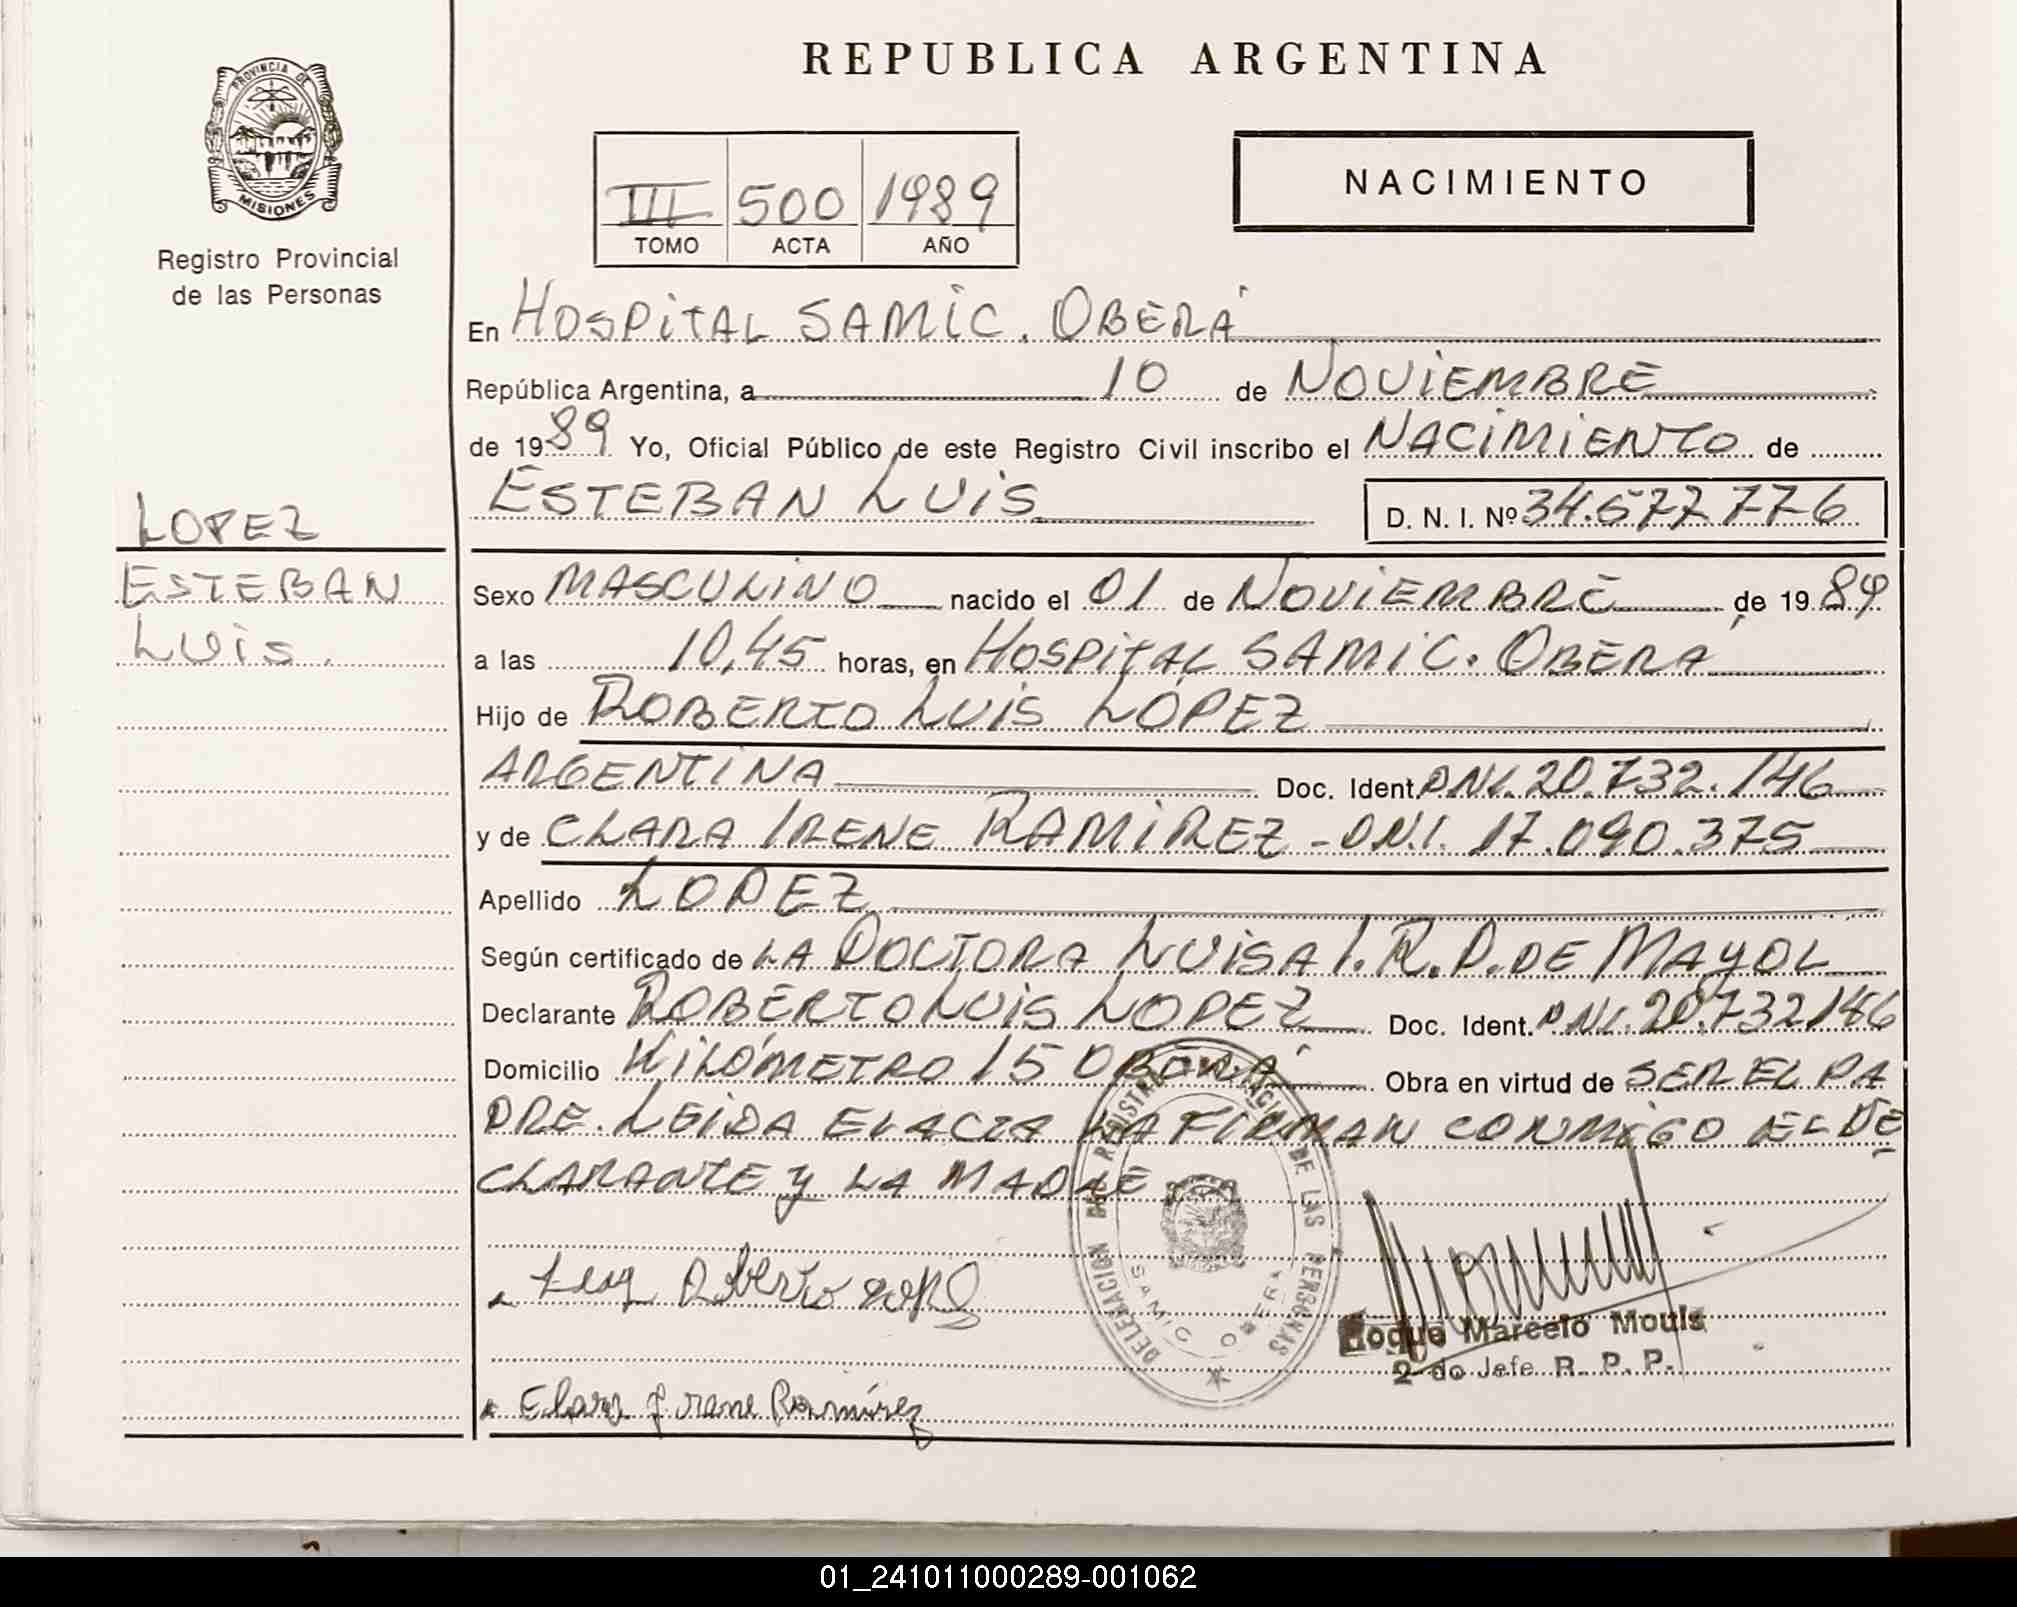 REPUBLICA ARGENTINA
PROVINCIA DE
MISIONES
Registro Provincial
de las Personas
III 500 1989
TOMO ACTA AÑO
NACIMIENTO
En HOSPITAL SAMIC. OBERÁ
República Argentina, a 10 de NOVIEMBRE
de 1989 Yo, Oficial Público de este Registro Civil inscribo el NACIMIENTO de
ESTEBAN LUIS D. N. I. Nº 34.677.776
LOPEZ
ESTEBAN
LUIS.
Sexo MASCULINO nacido el 01 de NOVIEMBRE de 1989
a las 10,45 horas, en HOSPITAL SAMIC. OBERÁ
Hijo de ROBERTO LUIS LÓPEZ
ARGENTINA Doc. Ident. DNI. 20.732.146
y de CLARA IRENE RAMIREZ - D.N.I. 17.090.375
Apellido LOPEZ
Según certificado de LA DOCTORA LUISA I. R. P. DE MAYOL
Declarante ROBERTO LUIS LOPEZ Doc. Ident. DNI. 20.732146
Domicilio KILÓMETRO 15 OBERÁ Obra en virtud de SER EL PA
DRE. LEIDA EL ACTA LA FIRMAN CONMIGO EL DE
CLARANTE y LA MADRE
DELEGACION DEL REGISTRO PROVINCIAL DE LAS PERSONAS
SAMIC OBERA
Roberto Lopez
Roque Marcelo Mouls
2 do Jefe R. P. P.
Clara Irene Ramírez
01_241011000289-001062